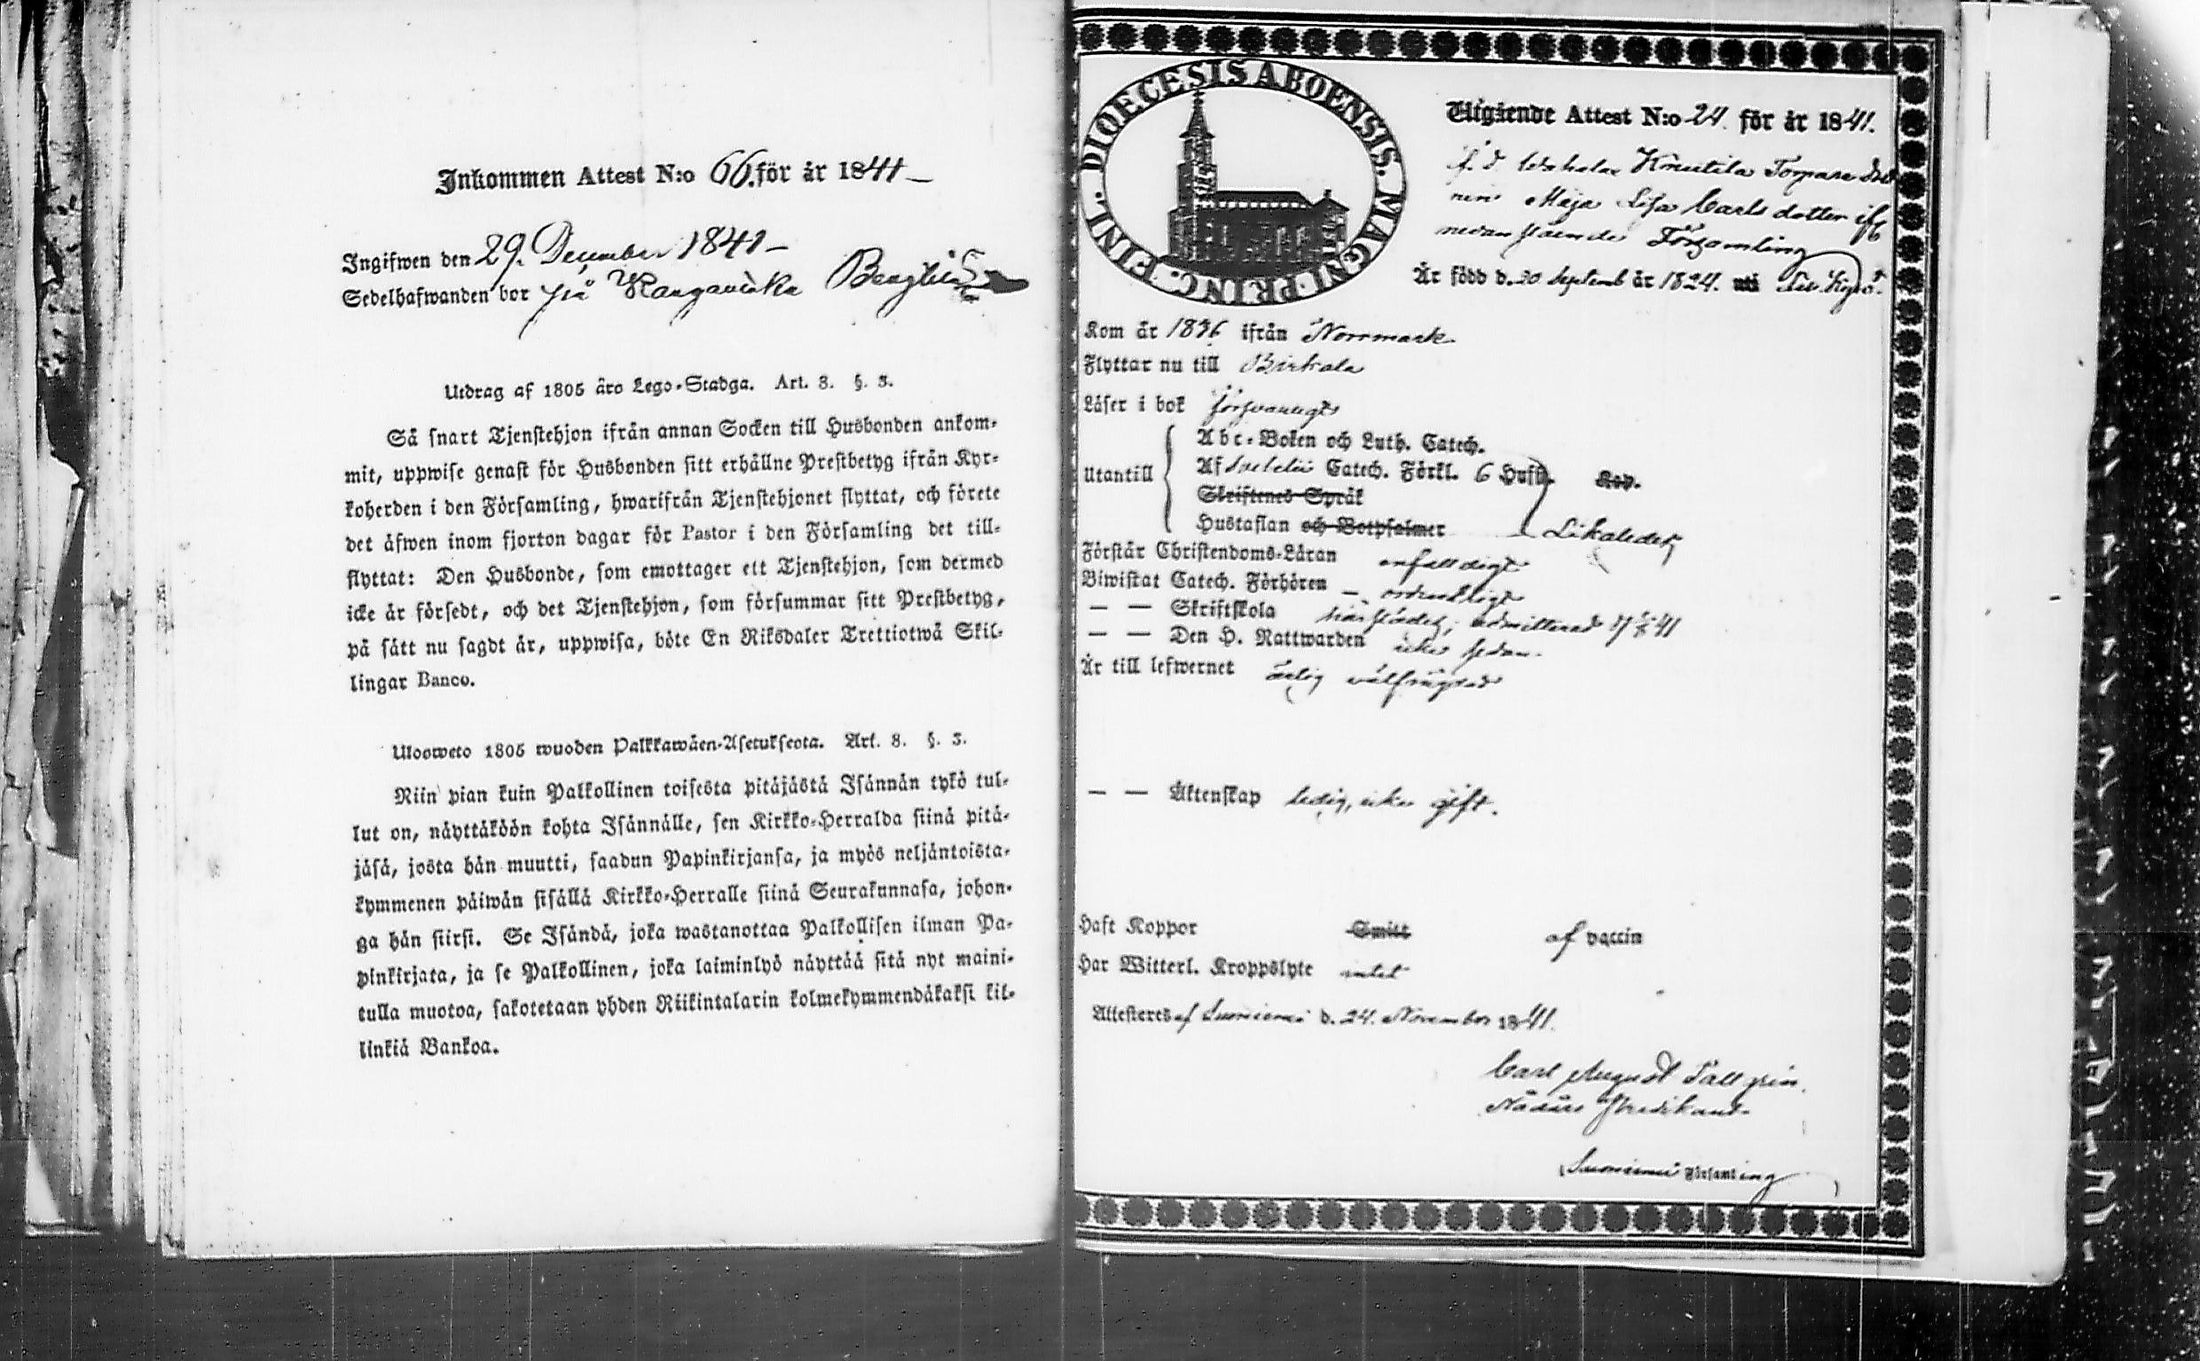 Inkommen Attest N:o 66. för år 1841 –
Ingifwen den 29. December 1841 –
Sedelhafwanden bor på
Utdrag af 1805 åro Lego-Stadga. Art. 8. §. 3.
Så snart Tjenstehjon ifrån annan Socken till Husbonden ankom-
mit, uppwise genast för Husbonden sitt erhållne Prestbetyg ifrån Kyr-
koherden i den Församling, hwarifrån Tjenstehjonet flyttat, och förete
det åfwen inom fjorton dagar för Pastor i den Församling det till-
flyttat: Den Husbonde, som emottager ett Tjenstehjon, som dermed
icke år försedt, och det Tjenstehjon, som försummar sitt Prestbetyg,
på sått nu sagdt år, uppwisa, böte En Riksdaler Trettiotwå Skil-
lingar Banco.
Ulosweto 1805 wuoden Palkkawåen-Asetuksesta. Art. 8. §. 3.
Niin pian kuin Palkollinen toisesta pitåjåstå Isånnån tykö tul-
lut on, nåyttåköön kohta Isånnålle, sen Kirkko-Herralda siinå pitå-
jåså, josta hån muutti, saadun Papinkirjansa, ja myös neljåntoista-
kymmenen påiwån sisållå Kirkko-Herralle siinå Seurakunnasa, johon-
ga hån siirsi. Se Isåndå, joka wastanottaa Palkollisen ilman Pa-
pinkirjata, ja se Palkollinen, joka laiminlyö nåyttåå sitå nyt maini-
tulla muotoa, sakotetaan yhden Riikintalarin kolmekymmendåkaksi kil-
linkiå Bankoa.
FINL. DIOECESIS ABOENSIS. MAGNI. PRINC.
Utgående Attest N:o 24. för år 1841.
f. d. Knuutila Torpare dot
Maja Lisa Carlsdotter
nedanstående Församling
År född d. 20 Septemb år 1824. uti Kyrö.
Kom år 1836 ifrån Norrmark
Flyttar nu till Birkala
Låser i bok försvarligt
Utantill
Abc-Boken och Luth. Catech.
Af Svebelii Catech. Förkl. 6 Hufst. Kap.
Skriftenes Språk
Hustaflan och Botpsalmer Likaledes
Förstår Christendoms-Låran enfalldigt
Biwistat Catech. Förhören – ordentligt
– – Skriftskola härstädes, admitterad
– – Den H. Nattwarden icke sedan.
År till lefwernet ärlig välfrägdad
– – Åktenskap ledig, icke gift.
Haft Koppor Smitt af vaccin
Har Witterl. Kroppslyte intet
Attesteres af Suoniemi d. 24. November 1841.
Carl August Tallgrén.
Nådårs Predikant
Suoniemi Församling